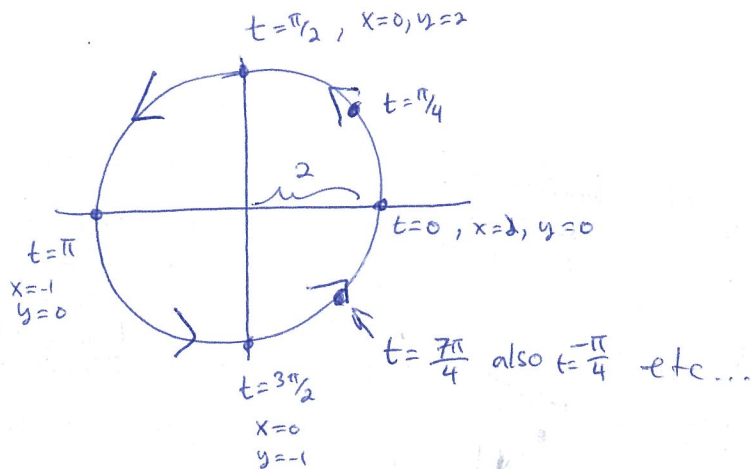 t=π/2 , x=0, y=2
t=π/4
2
t=0 , x=2, y=0
t=π
x=-1
y=0
t=7π/4 also t=-π/4 etc...
t=3π/2
x=0
y=-1